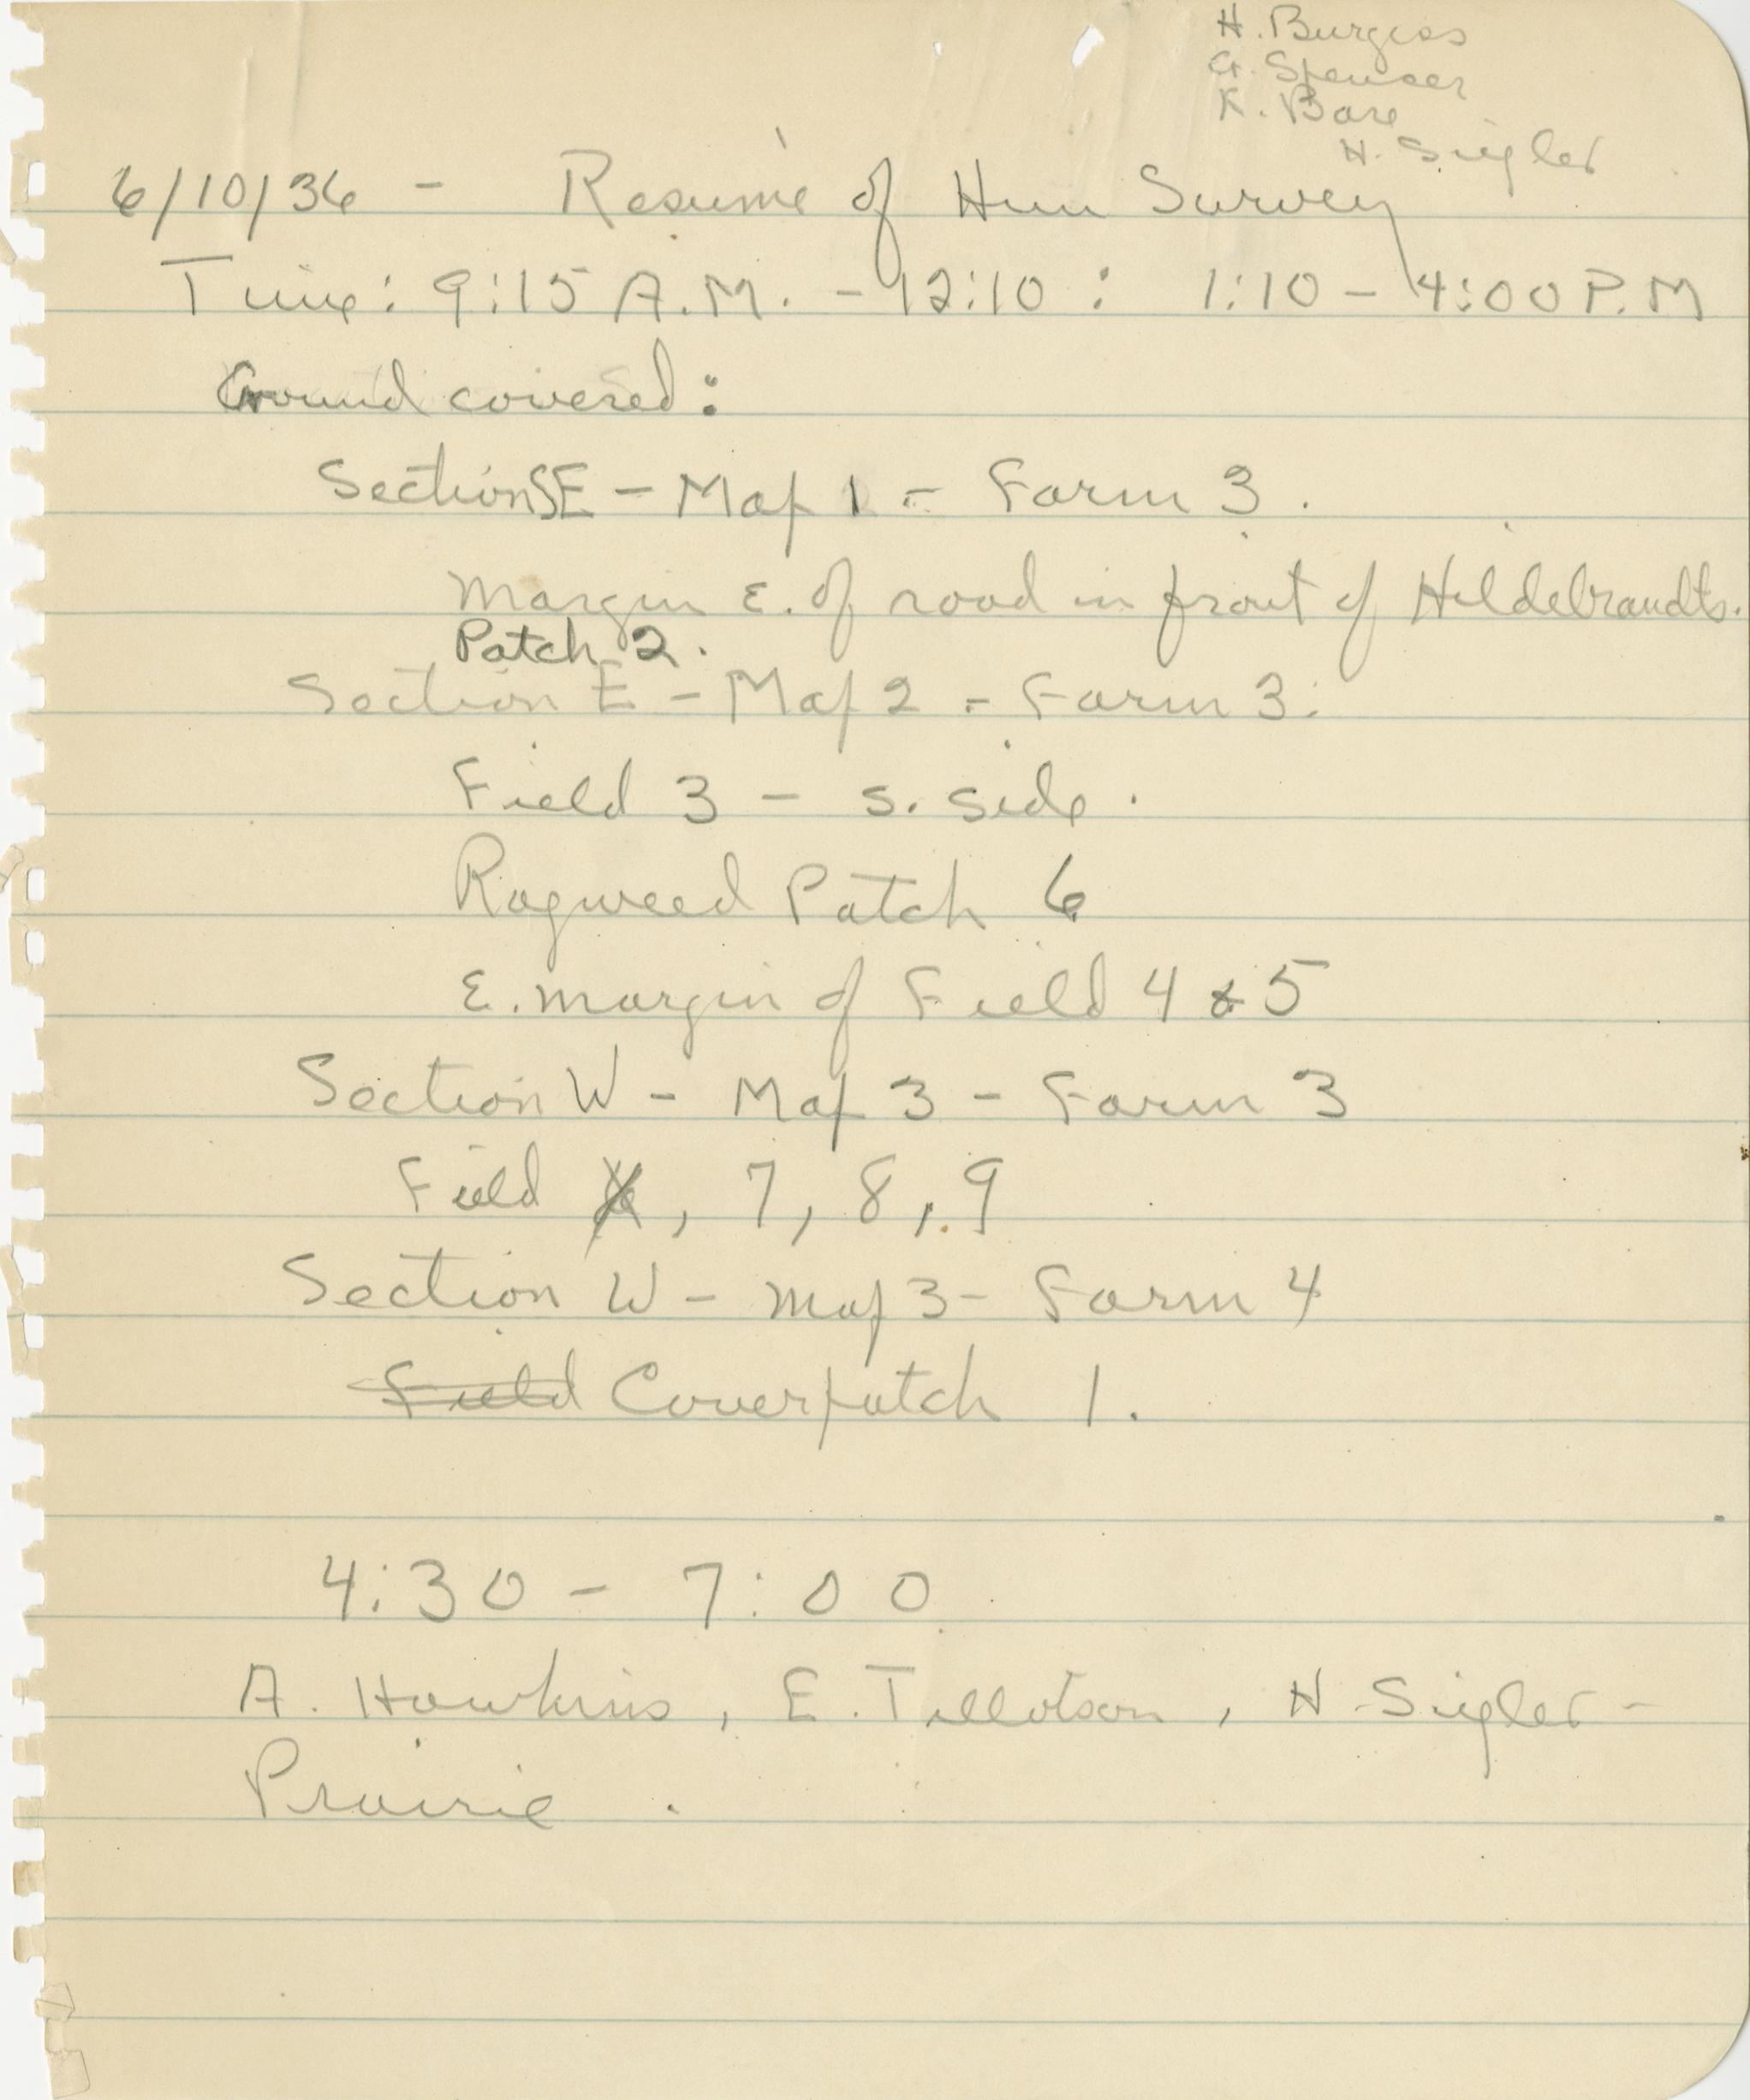 H. Burgess
G. Spenser
K. Bare
H. Sigler
6/10/36 - Resumé of Hun Survey
Time: 9:15 A.M. - 12:10 : 1:10 - 4:00 P.M
Ground covered:
Section SE - Map 1 - Farm 3.
Margin E. of road in front of Hildebrandts.
Patch 2.
Section E - Map 2 - Farm 3.
Field 3 - S. side.
Ragweed Patch 6
E. margin of Field 4 & 5
Section W - Map 3 - Farm 3
Field 6, 7, 8, 9
Section W - Map 3 - Farm 4
Field Coverpatch 1.
4:30 - 7:00
A. Hawkins, E. Tillotson, H Sigler -
Prairie.